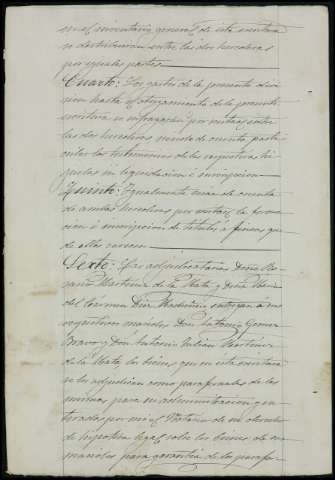 en el inventario general de esta escritura
se distribuirán entre las dos herederas
por iguales partes.
Cuarto: Los gastos de la presente divi-
sion hasta el otorgamiento de la presente
escritura se sufragarán por mitad entre
las dos herederas siendo de cuenta parti-
cular los testimonios de las respectivas hi-
juelas su liquidacion é inscripcion
Quinto: Igualmente serán de cuenta
de ambas herederas por mitad la forma-
cion é inscripcion de títulos á fincas que
de ellos carecen
Sexto: Las adjudicatarias Doña
Martinez de la Mata y Doña Maria
del Cármen Diaz Martinez entregan á sus
respectivos maridos, Don Antonio Gomez
Bravo y Don Antonio Julian Martinez
de la Mata, los bienes que en esta escritura
se les adjudican como parafernales de las
mismas para su administracion, en-
teradas por mí el Notario de su derecho
de hipoteca legal sobre los bienes de sus
maridos para garantía de los parafer-